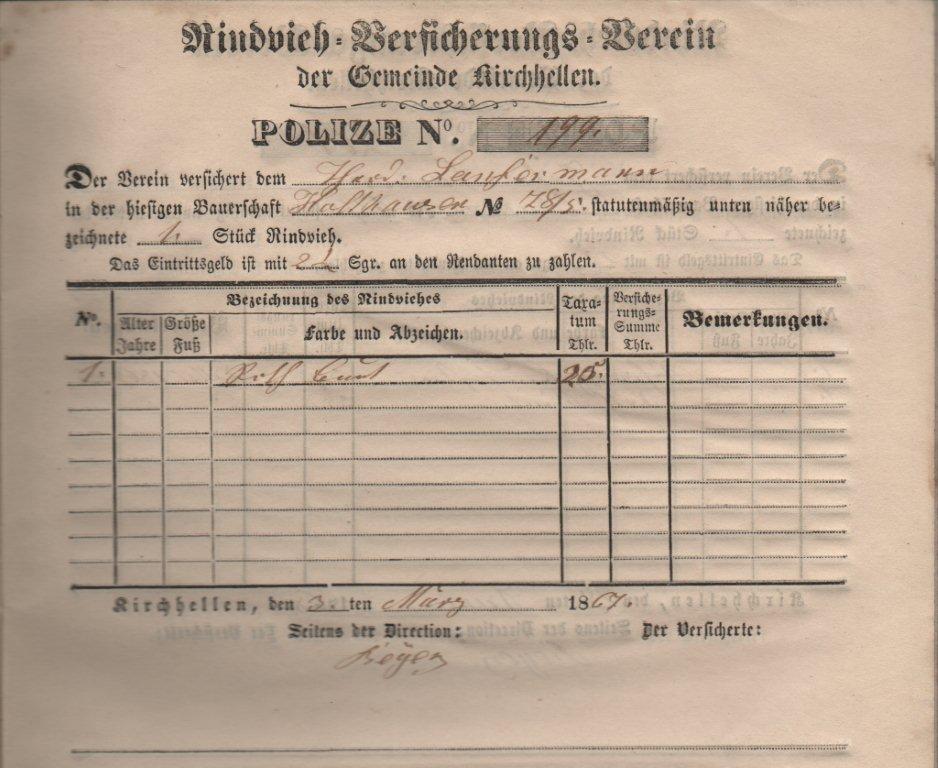 Rindvieh-Versicherungs-Verein
der Gemeinde Kirchhellen.
POLIZE No. 199.
Der Verein versichert dem
in der hiesigen Bauerschaft No 78/5. statutenmäßig unten näher be-
zeichnete 1. Stück Rindvieh.
Das Eintrittsgeld ist mit Sgr. an den Rendanten zu zahlen.
Bezeichnung des Rindviehes
No. Alter Jahre Größe Fuß Farbe und Abzeichen. Taxa-tum Thlr. Versiche-rungs-Summe Thlr. Bemerkungen.
1. 25.
Kirchhellen, den 3. ten März 1867.
Seitens der Direction: Der Versicherte: